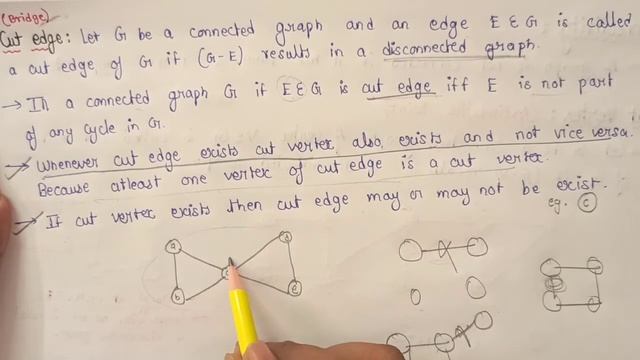 (Bridge)
Cut edge: Let G be a connected graph and an edge E ∈ G is called
a cut edge of G if (G-E) results in a disconnected graph.
→ In a connected graph G if E∈G is cut edge iff E is not part
of any cycle in G.
→ Whenever cut edge exists cut vertex also exists and not vice versa.
Because atleast one vertex of cut edge is a cut vertex.
→ If cut vertex exists then cut edge may or may not be exist.
eg. C
a
b
e